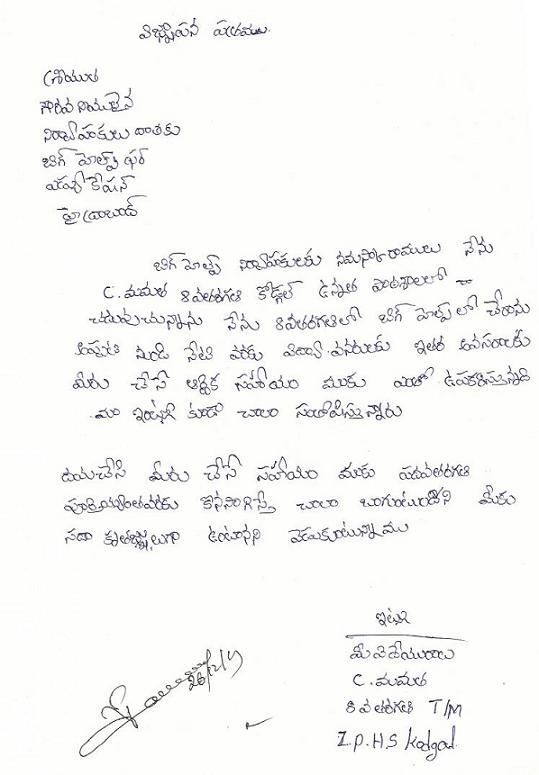 విజ్ఞాపన పత్రము
శ్రీయుత
గౌరవనీయులైన
నిర్వాహకులు దాతకు
బిగ్ హెల్ప్ ఫర్
ఎడ్యుకేషన్
హైద్రాబాద్
బిగ్ హెల్ప్ నిర్వాహకులకు నమస్కారములు నేను
C. మమత 8వతరగతి కోడ్గల్ ఉన్నత పాఠశాలలో
చదువుచున్నాను నేను 8వతరగతిలో బిగ్ హెల్ప్ లో చేరాను
అప్పటి నుండి నేటి వరకు విద్యా వనరులకు ఇతర అవసరాలకు
మీరు చేసే ఆర్థిక సహాయం మాకు ఎంతో ఉపకరిస్తున్నది
మా ఇంట్లో కూడా చాలా సంతోషిస్తున్నారు
దయచేసి మీరు చేసే సహాయం మాకు పదవతరగతి
పూర్తియ్యేంతవరకు కొనసాగిస్తే చాలా బాగుంటుందని మీకు
సదా కృతజ్ఞులుగా ఉంటానని వేడుకుంటున్నాము
ఇట్లు
మీ విధేయురాలు
C. మమత
8వ తరగతి T/M
Z.P.H.S Kodgal